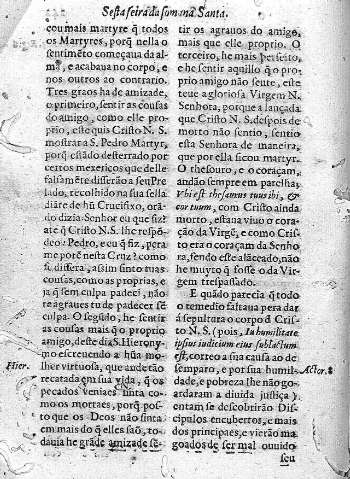 Sesta feira da somana Santa.
cou mais martyre q̃ todos
os Martyres, porq̃ nella o
sentimẽto começaua da al-
ma, e acabaua no corpo, e
nos outros ao contrario.
Tres graos ha de amizade,
o primeiro, sentir as cousas
do amigo, como elle pro-
prio, este quis Cristo N. S.
mostrar a S. Pedro Martyr,
porq̃ estãdo desterrado por
certos mexericos que delle
falsamẽte disserão a seu Pre
lado, recolhido na sua sella
diãte de hũ Crucifixo, orã-
do dizia: Senhor eu que fiz?
atè q̃ Cristo N.S. lhe respõ-
deo: Pedro, e eu q̃ fiz, pera
me porẽ nesta Cruz? como
se dissera, assim sinto tuas
cousas, como as proprias, e
ja q̃ sem culpa padeci, não
te agraues tu de padecer sẽ
culpa. O segũdo, he sentir
as cousas mais q̃ o proprio
amigo, deste diz S. Hierony-
mo escreuendo a hũa mo-
Hier.
lher virtuosa, que ande tão
recatada em sua vida, q̃ os
pecados veniaes sinta co-
mo os mortaes, porq̃ pos-
to que os Deos não sinta
em mais do q̃ elles saõ, to-
dauia he grãde amizade sẽ-
tir os agrauos do amigo,
mais que elle proprio. O
terceiro, he mais perfeito,
e he sentir aquillo q̃ o pro-
prio amigo não sente, este
teue a gloriosa Virgem N.
Senhora, porque a lançada
que Cristo N. S. despois de
morto não sentio, sentio
esta Senhora de maneira,
que por ella ficou martyr.
O thesouro, e o coraçam,
andão sempre em parelha,
Vbi est thesaurus tuus ibi, &
cor tuum, com Cristo ainda
morto, estaua viuo o cora-
ção da Virgẽ, e como Cris-
to era o coraçam da Senho
ra, sendo este alãceado, não
he muyto q̃ fosse o da Vir-
gem trespassado.
E quãdo parecia que todo
o remedio faltaua pera dar
à sepultura o corpo d Cris-
to N.S. (pois, In humilitate
ipsius iudicium eius sublatum
est, correo a sua causa ao de
semparo, e por sua humil-
Actor. 8
dade, e pobreza lhe não go-
ardaram a diuida justiça)
entam se descobrirão Dis-
cipulos encubertos, e mais
dos principaes, e vierão ma
goados de ser mal ouuido
seu